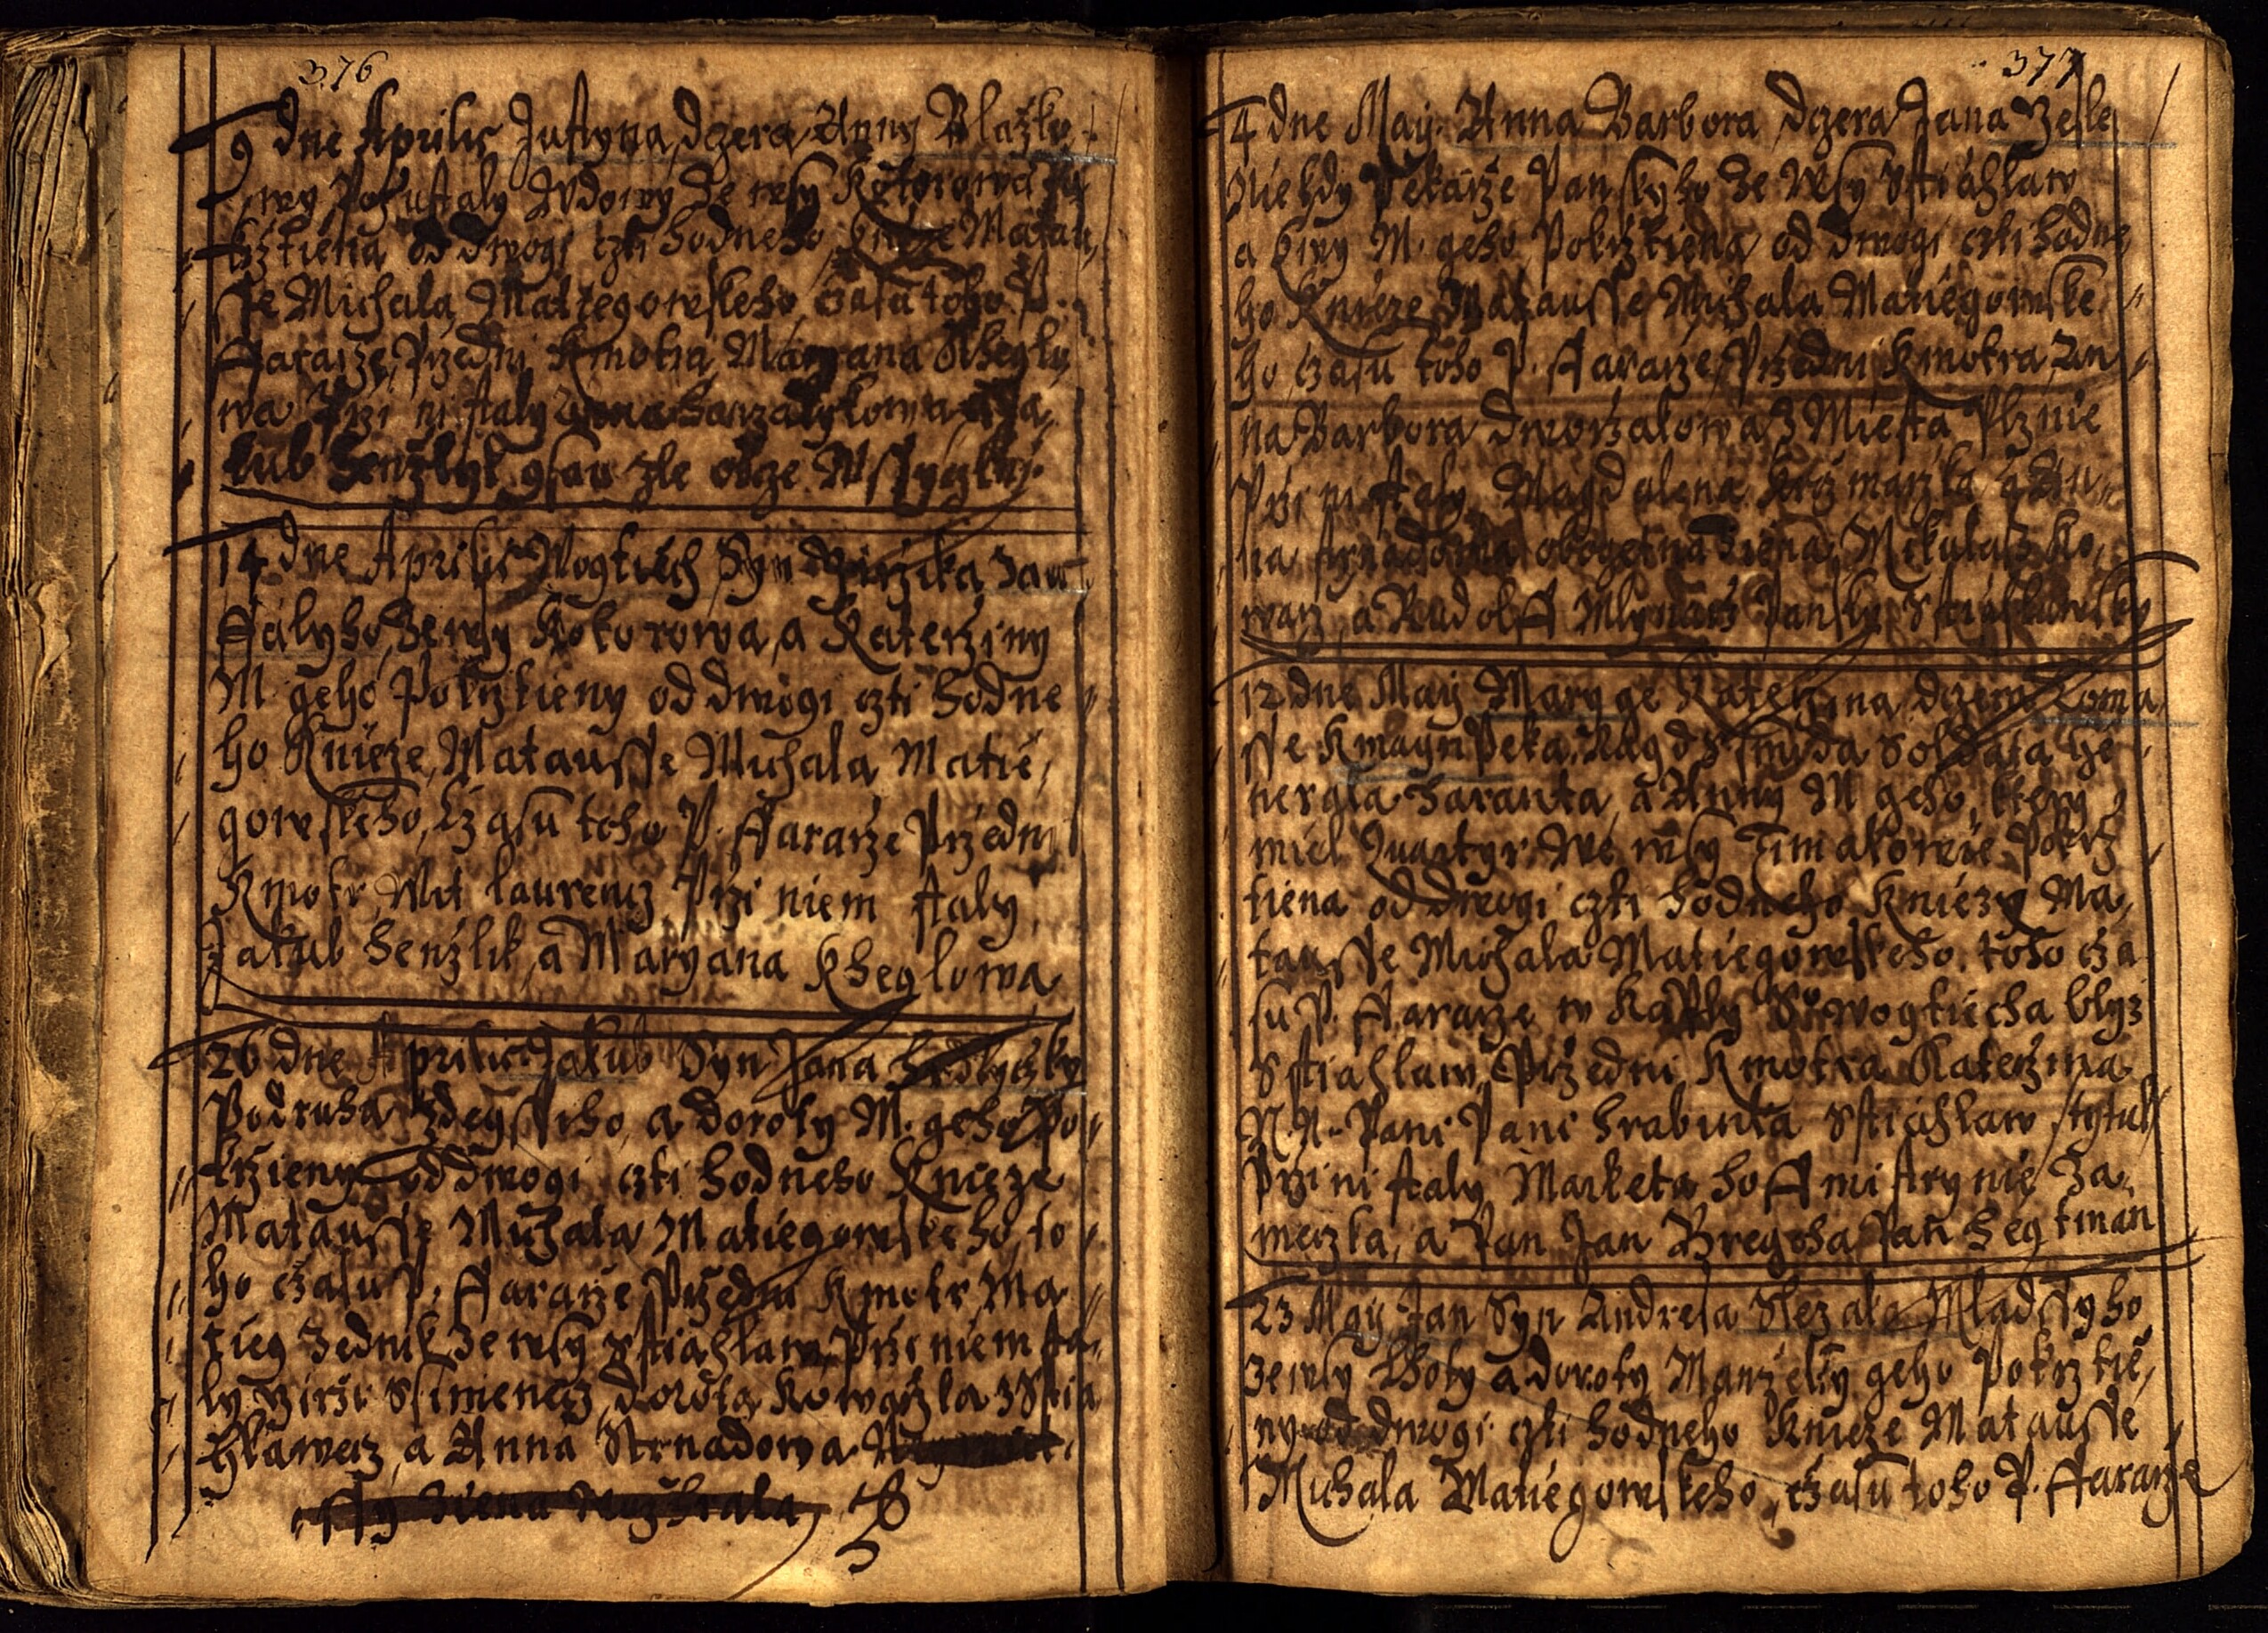 376
9 dne Aprilis Justyna, dczera Anny Blažko
wy Pozustaly Wdowy ze wsy Kotorowa
krztiena od dwogi czti hodneho knieze Matau
sse Michala Matiegowskeho, czasu toho P.
Fararze, Przedni Kmotra, Maryana Khegly
wa Przi ni staly Anna
kub Henžlyk
14 dne Aprilis Wogtiech Syn Girzika
ze wsy Kokorowa, a Katerziny
M. geho, Pokrztieny od dwogi czti hodne
ho Knieze, Matausse Michala Matie,
gowskeho, czasu toho P. Fararze Przedni
Kmotr, Wit laurencz Przi niem staly,
Jakub henžlik, a Maryana Kheglowa
26 dne Aprilis Jakub Syn Jana
Podruha zdegssyho, a doroty M. geho Po
krztieny od dwogi czti hodneho Knieze
Matausse Michala Matiegowskeho, to
ho czasu P. Fararze Przedni Kmotr Ma
tieg Zednik ze wsy Sstiahlaw Przi niem sta
ly Girži Ssimenecz, dorota Kowarzka z Stia
hlawecz, a Anna Strnadowa
ssy žiena
377
4 dne Maij Anna Barbora dczera Jana
Niekdy Pekarže Panskyho ze Wsy Sstiahlaw
a Ewy M. geho, Pokrztiena od dwogi czti hodne
ho Knieze Matausse Michala Matiegowske
ho, czasu toho P. Fararze, Przedni Kmotra, An
na Barbora dworzakowa z Miesta Plznie
Przi ni staly Magdalena
žiena, Mikulass Ko
warz, a Rudolff Mlynarz Pansky Sstiahlawsky
12 dne Maij Maryge Katerzina dczera Toma
sse
nergla haranta, a Anny M geho, ktery
miel Quartyr We wsy Timakowie Pokrz
tiena od dwogi czti hodneho Kniezy Ma,
tausse Michala Matiegowskeho. toho cza
su P. Fararze w Kaply S. wogtiecha blyz
Sstiahlaw, Przedni Kmotra Katerzina
N. N. Pani Pani hrabinka Sstiahlaw, tytul
Przi ni staly Marketa hoffmistrynie Za
meczka, a Pan Jan Bregcha Pan hegtman
23 Maij Jan Syn Andresa Slezaka Mladssyho
ze wsy Lhoty a doroty Manželky geho Pokrztie,
ny od dwogi czti hodneho Knieze Matausse
Michala Matiegowskeho, czasu toho P. Fararze